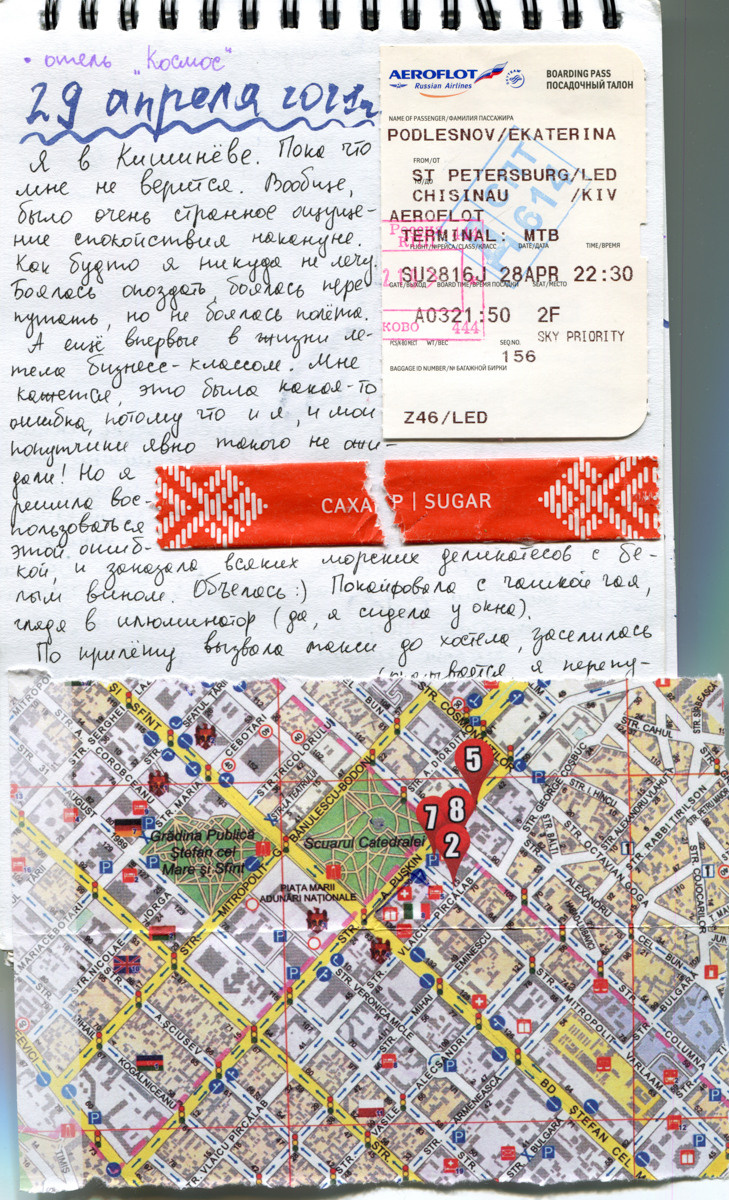 • отель "Космос"
29 апреля 2021г
Я в Кишинёве. Пока что
мне не верится. Вообще,
было очень странное ощуще-
ние спокойствия накануне.
Как будто я никуда не лечу.
Боялась опоздать, боялась пере
путать, но не боялась полёта.
А ещё впервые в жизни ле-
тела бизнесс-классом. Мне
кажется, это была какая-то
ошибка, потому что и я, и мои
попутчики явно такого не ожи-
дали! Но я
решила вос-
пользоваться
этой ошиб-
кой, и заказала всяких морских деликатесов с бе-
лым вином. Объелась:) Покайфовала с чашкой чая,
глядя в иллюминатор (да, я сидела у окна).
По прилёту вызвала такси до хостела, заселилась
я перепу-
AEROFLOT
Russian Airlines
SKYTEAM
BOARDING PASS
ПОСАДОЧНЫЙ ТАЛОН
NAME OF PASSENGER/ФАМИЛИЯ ПАССАЖИРА
PODLESNOV/EKATERINA
FROM/ОТ
ST PETERSBURG/LED
TO/ДО
CHISINAU /KIV
AEROFLOT
TERMINAL: MTB
FLIGHT/№ РЕЙСА/CLASS/КЛАСС DATE/ДАТА TIME/ВРЕМЯ
SU2816J 28APR 22:30
GATE/ВЫХОД BOARD TIME/ВРЕМЯ ПОСАДКИ SEAT/МЕСТО
A0321:50 2F
SKY PRIORITY
PCS/КОЛ МЕСТ WT/ВЕС SEQ NO.
156
BAGGAGE ID NUMBER/№ БАГАЖНОЙ БИРКИ
Z46/LED
СПТ
614
444
САХАР | SUGAR
5
7 8
2
Grădina Publică
Ștefan cel
Mare și Sfînt
Scuarul Catedralei
PIAȚA MARII
ADUNĂRI NAȚIONALE
STR. COSMONAUȚILOR
STR. TRICOLORULUI
G. BĂNULESCU-BODONI
MITROPOLIT
STR. A. PUȘKIN
STR. VLAICU PÎRCĂLAB
V.LAICU PÎRCĂLAB
EMINESCU
MIHAI
STR. VERONICA MICLE
ALECSANDRI
ARMENEASCĂ
A.ȘCIUSEV
KOGĂLNICEANU
BD. ȘTEFAN CEL M
STR. BULGARĂ
STR. MITROPOLIT
VARLAAM
COLUMNA
STR. OCTAVIAN GOGA
STR. ALEXANDRU
HAJDEU
STR. GEORGE COȘBUC
STR. I. HÎNCU
STR. BĂLȚI
STR. RABBI ȚIRILSON
STR. COJOCARILOR
STR. CAHUL
CEBOTARI
STR. MARIA
STR. SERGHEI
STR. A. COROBCEANU
STR. NICOLAE
IORGA